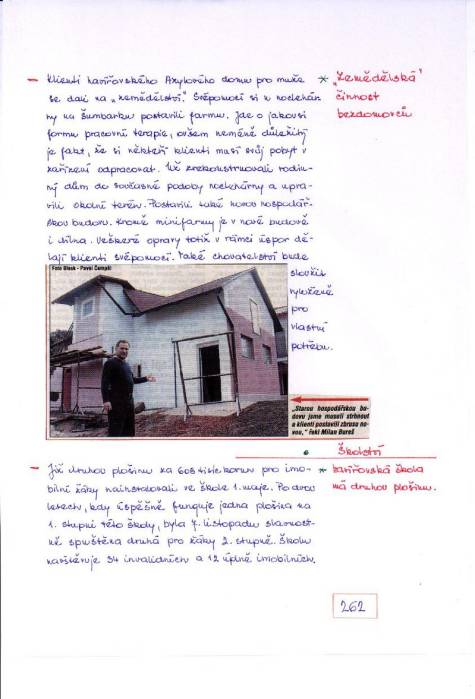 – Klienti havířovského Azylového domu pro muže
se dali na „zemědělství." Svépomocí si u noclehár-
ny na Šumbarku postavili farmu. Jde o jakousi
formu pracovní terapie, ovšem neméně důležitý
je fakt, že si někteří klienti musí svůj pobyt v
zařízení odpracovat. Už zrekonstruovali rodin-
ný dům do současné podoby noclehárny a upra-
vili okolní terén. Postavili také novou hospodář-
skou budovu. Kromě minifarmy je v nové budově
i dílna. Veškeré opravy totiž v rámci úspor dě-
lají klienti svépomocí. Také chovatelství bude
sloužit
výlučně
pro
vlastní
potřebu.
* „Zemědělská"
činnost
bezdomovců
Foto Blesk - Pavel Čempěl
„Starou hospodářskou bu-
dovu jsme museli strhnout
a klienti postavili zbrusu no-
vou," řekl Milan Bureš
Školství
– Již druhou plošinu za 608 tisíc korun pro imo-
bilní žáky nainstalovali ve škole 1. máje. Po dvou
letech, kdy úspěšně funguje jedna plošina na
1. stupni této školy, byla 7. listopadu slavnost-
ně spuštěna druhá pro žáky 2. stupně. Školu
navštěvuje 34 invalidních a 12 úplně imobilních.
* Havířovská škola
má druhou plošinu.
262